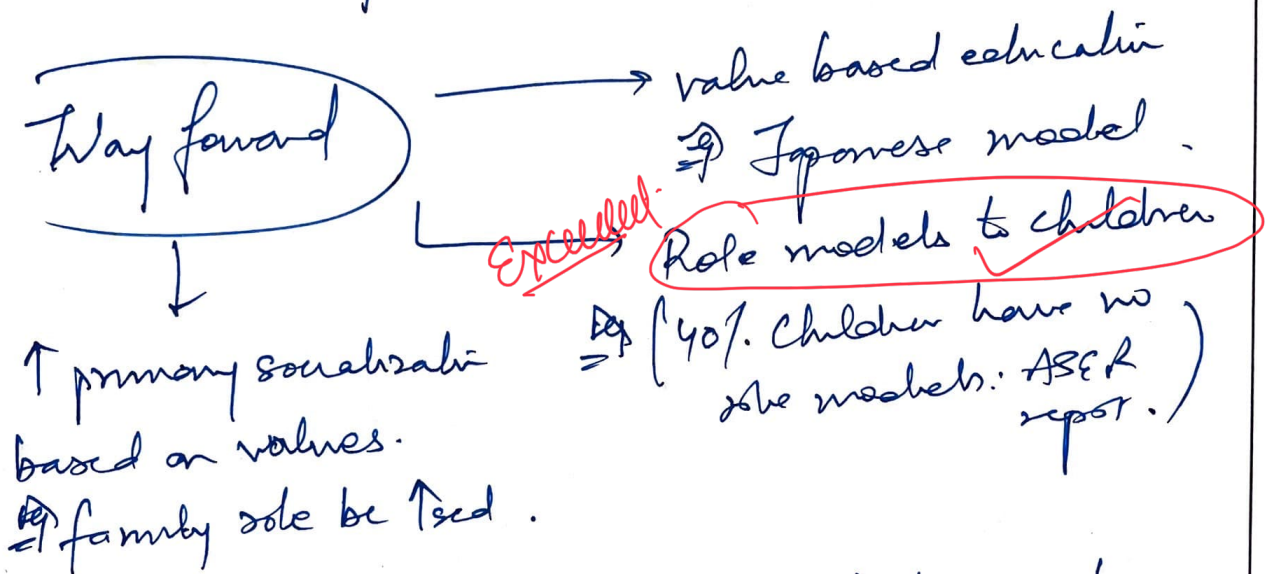 Way forward
value based education
Eg Japanese model.
Excellent.
Role models to children
Eg (40%. Children have no
role models: ASER
report.)
↑ primary socialisation
based on values.
Eg family role be ↑sed.